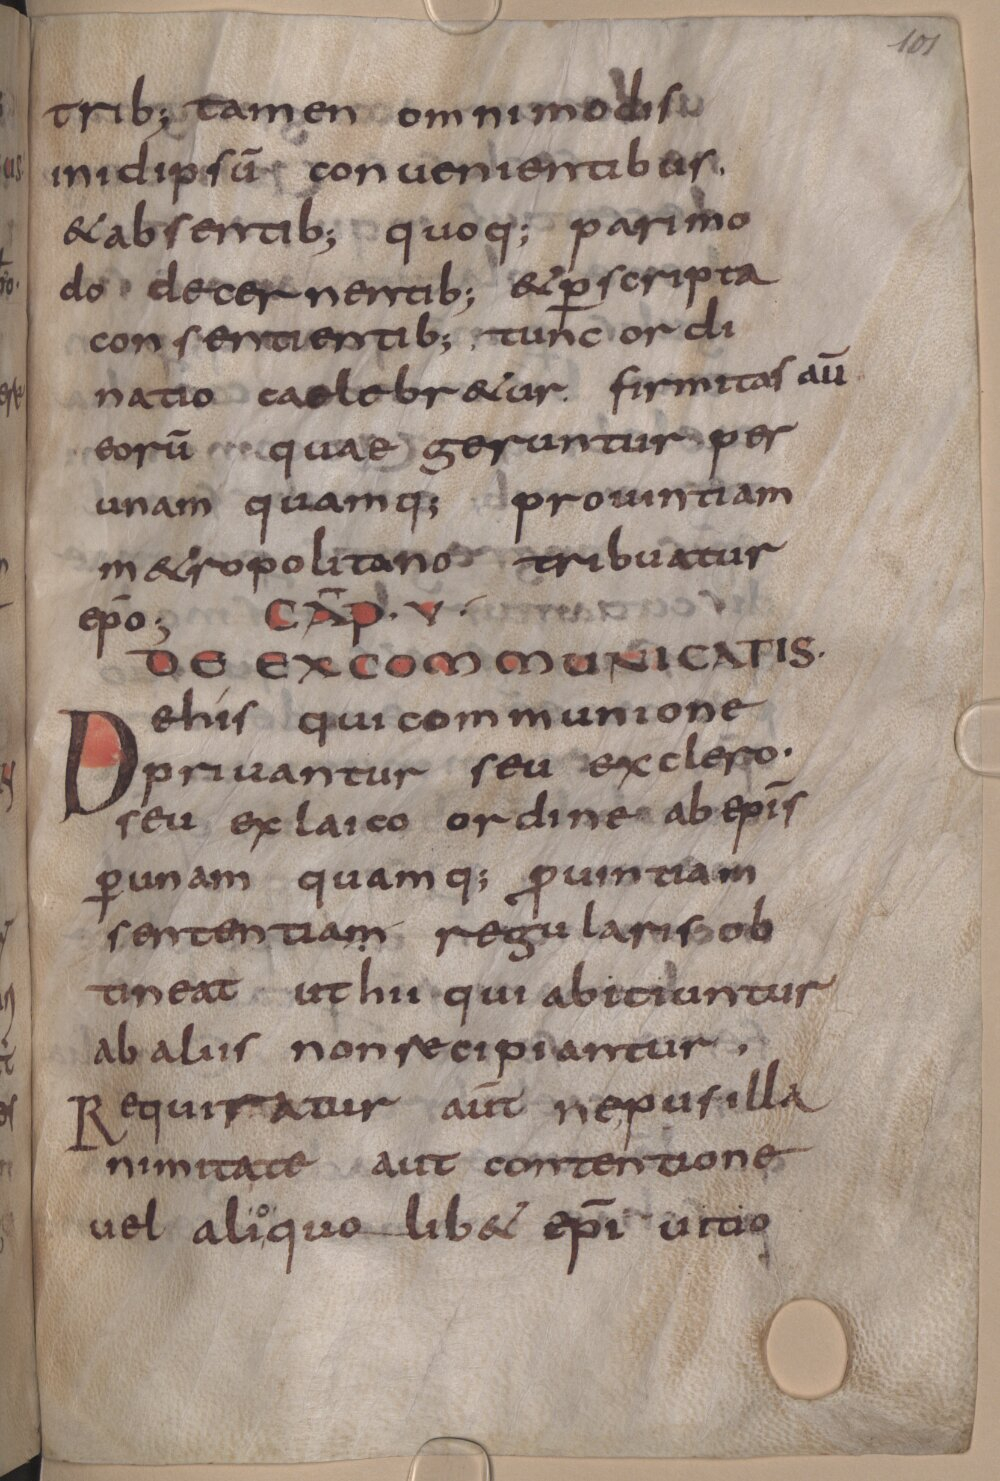 101
trib; tamen omnimodis
inidipsū conuenientibus.
&absentib; quoq; parimo
do decernentib; &p̱scripta
consentientib; tunc ordi
natio caelebr&ur. firmitas aū
eorū quae geruntur per
unam quamq; prouintiam
m&ropolitano tribuatur
ep̄o; CAP̄. V.
DE EXCOMMUNICATIS.
Dehis qui communione
priuantur seu exclero.
seu exlaico ordine abep̄is
p̱unam quamq; ꝓuintiam
sententiam regularis ob
tineat uthii qui abiciuntur
abaliis nonrecipiantur.
Requiratur aūt nepusilla
nimitate aut contentione
uel alioquo lib& ep̄i uitio